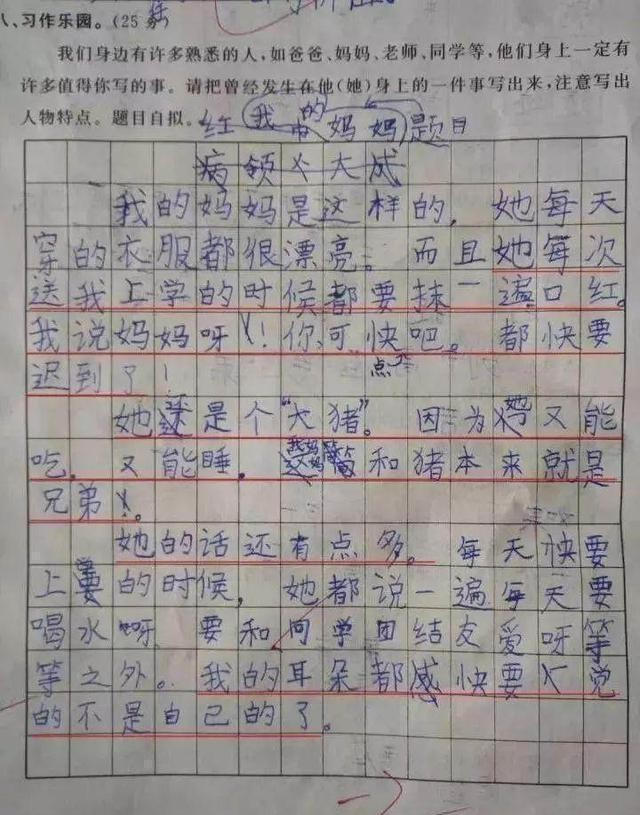 八、习作乐园。(25分)
我们身边有许多熟悉的人,如爸爸、妈妈、老师、同学等,他们身上一定有
许多值得你写的事。请把曾经发生在他(她)身上的一件事写出来,注意写出
人物特点。题目自拟。
红 我的妈妈 题目
我的妈妈是这样的,她每天
穿的衣服都很漂亮。而且她每次
送我上学的时候都要抹一遍口红。
我说妈妈呀!你可快点吧。都快要
迟到了!
她还是个“大猪”。因为她又能
吃,又能睡。我妈妈和猪本来就是
兄弟。
她的话还有点多。每天快要
上学的时候,她都说一遍每天要
喝水呀 要和同学团结友爱呀等
等之外。我的耳朵都感快要觉
的不是自己的了。